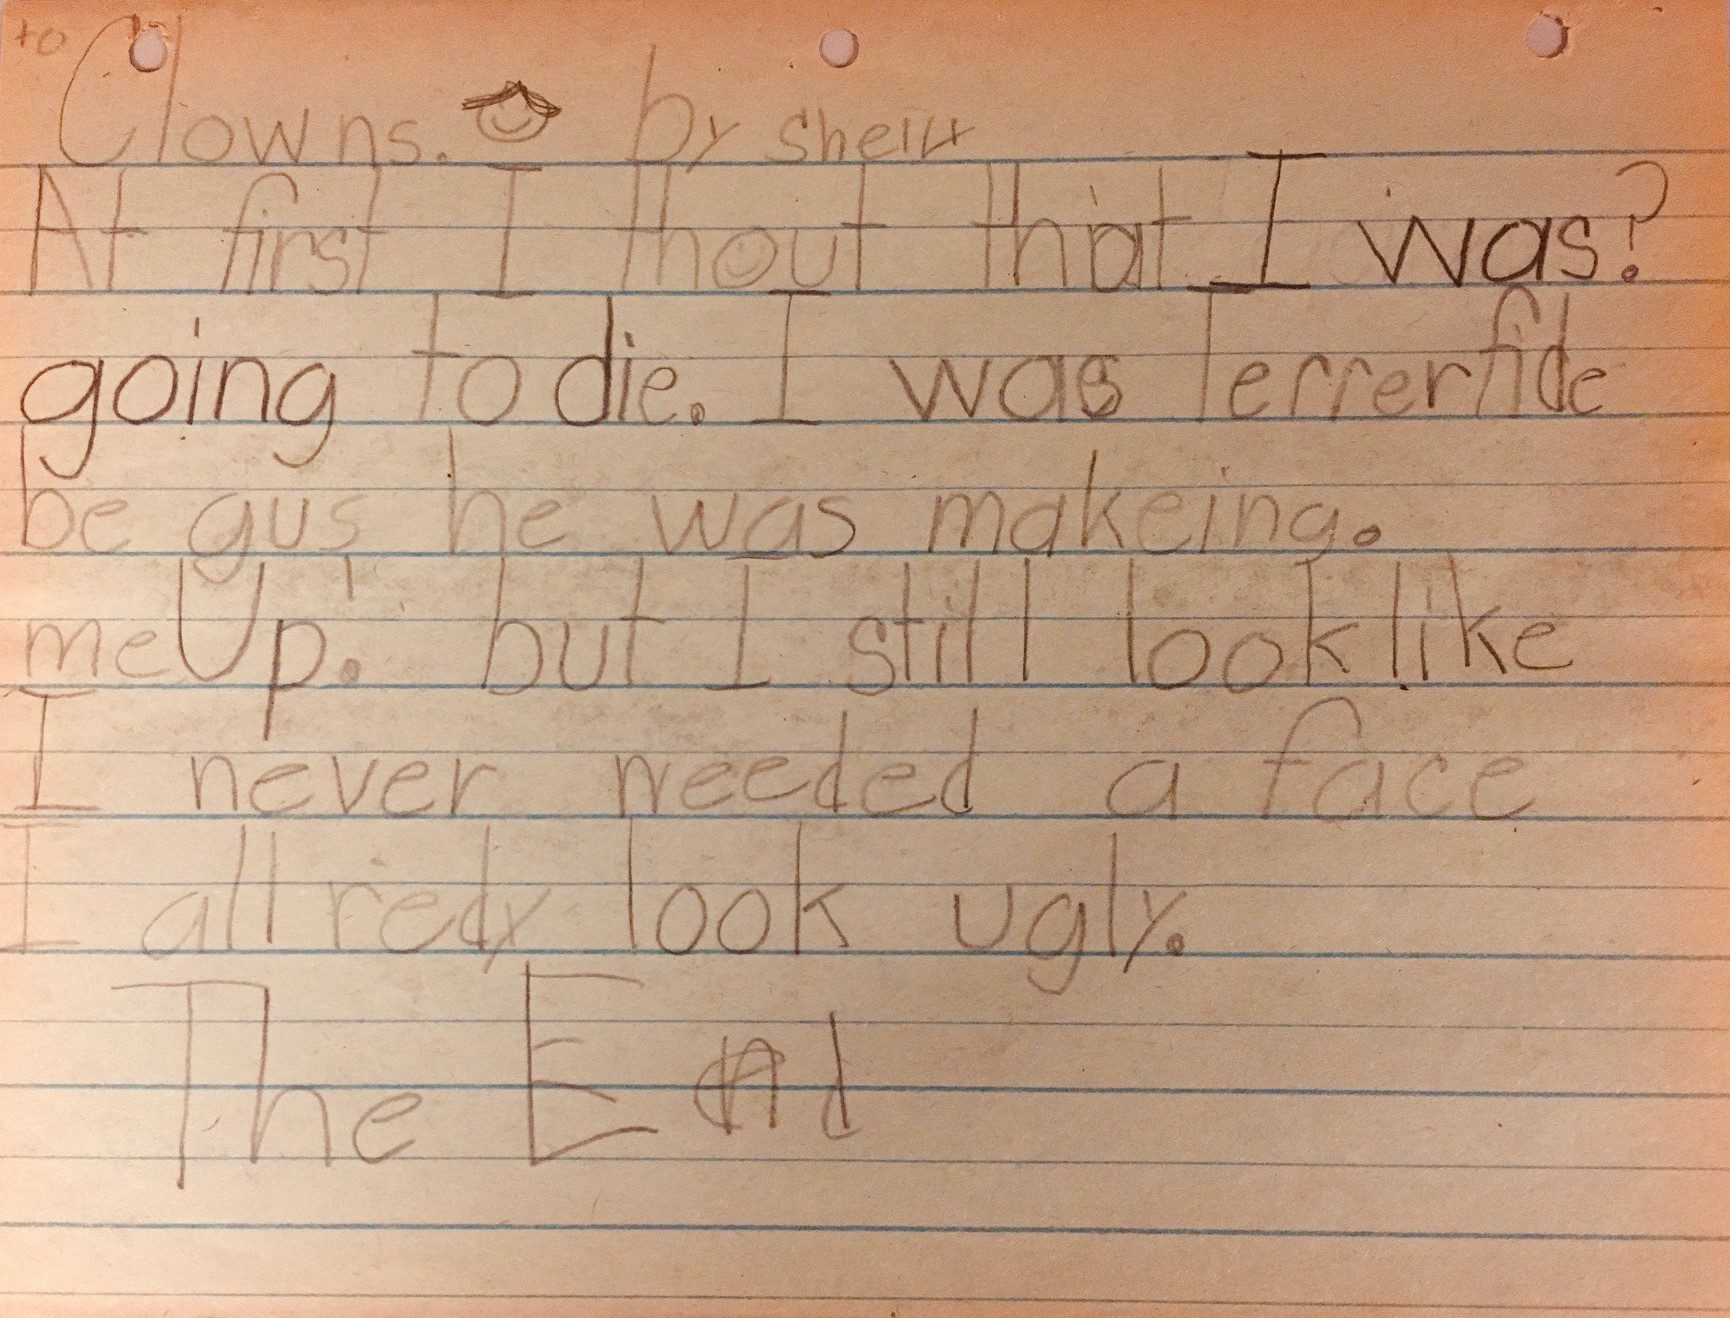 to
Clowns. by
At first I thout that I was?
going to die. I was Terrerfide
be gus he was makeing.
me Up. but I still look like
I never needed a face
I all redy look ugly.
The End